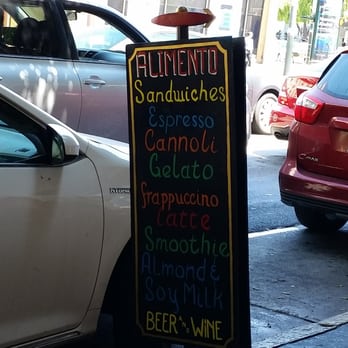 ALIMENTO
Sandwiches
Espresso
Cannoli
Gelato
frappuccino
Latte
Smoothie
Almond &
Soy Milk
BEER and WINE
C-MAX